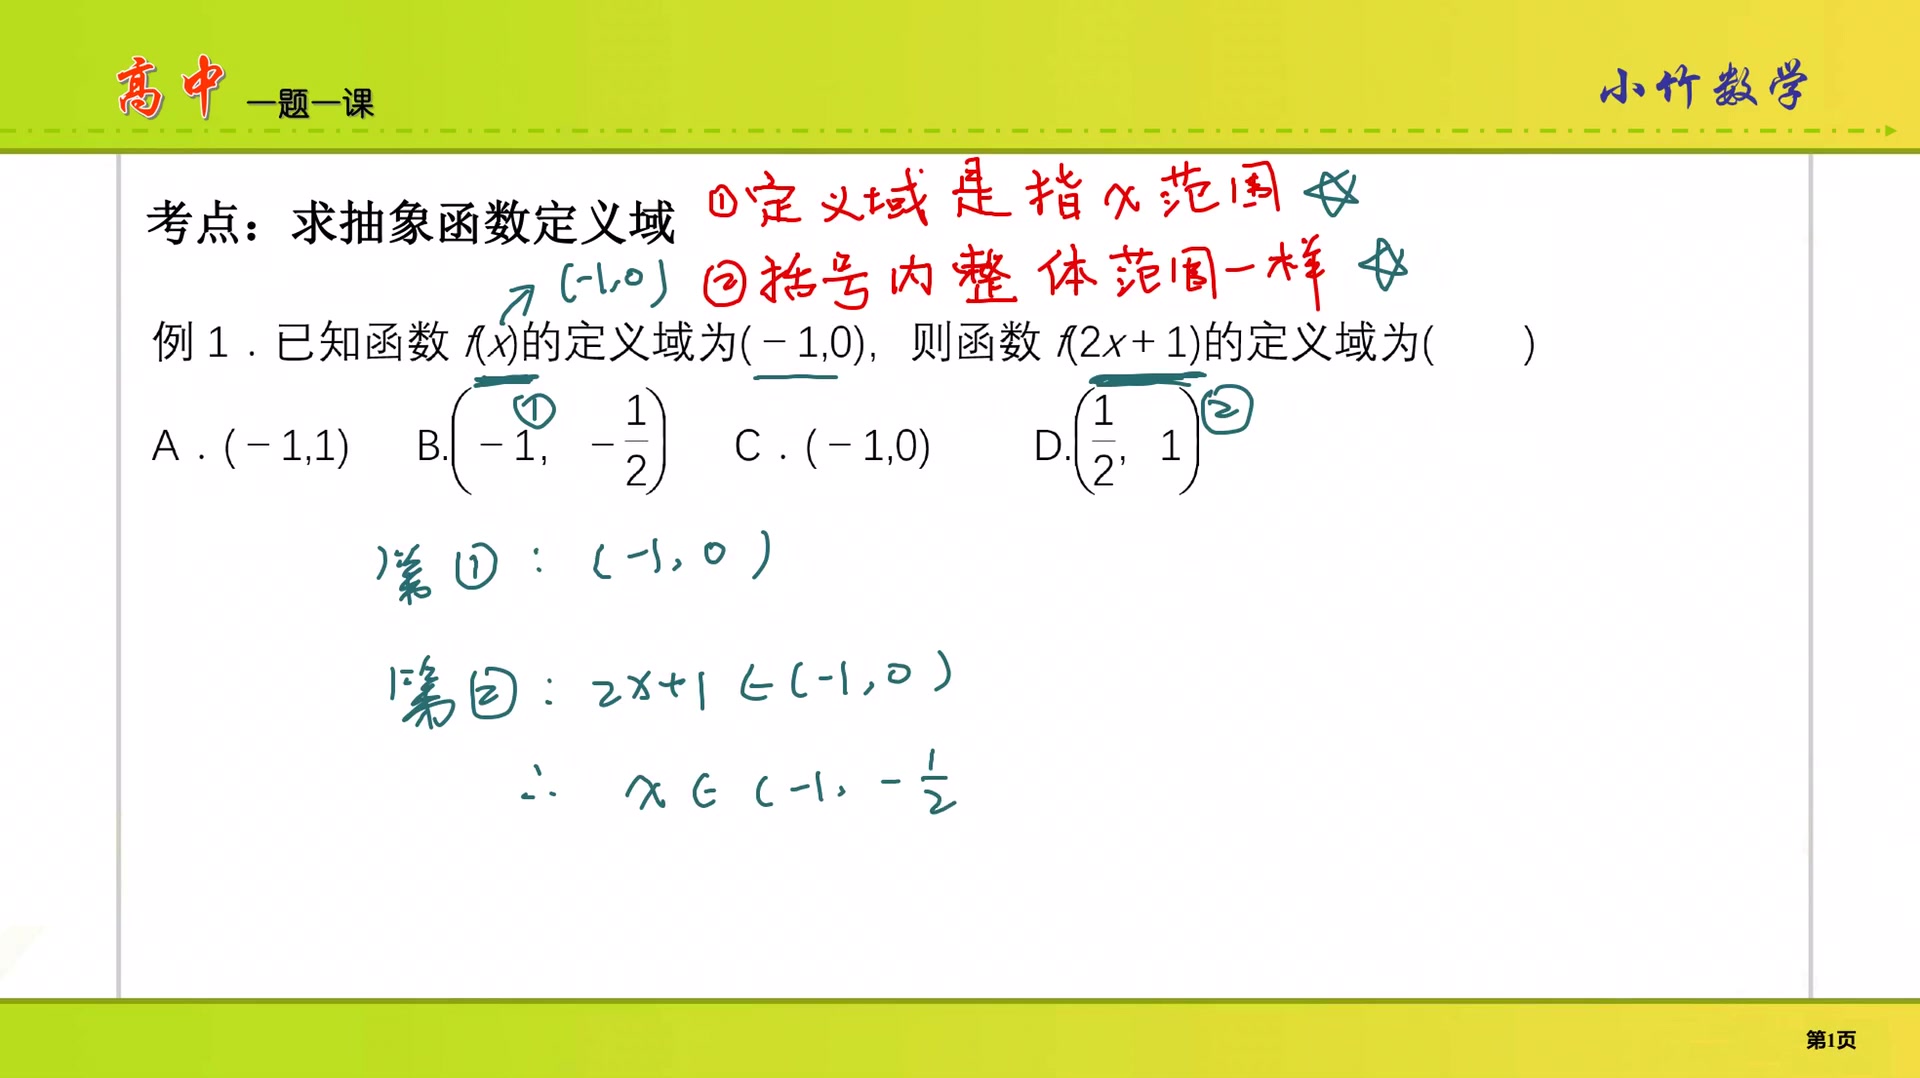 高中 一题一课
小竹数学
考点：求抽象函数定义域
①定义域是指x范围
②括号内整体范围一样
(-1,0)
例1．已知函数 f(x)的定义域为(－1,0)，则函数 f(2x＋1)的定义域为(　　)
① ②
A．(－1,1)　B.(－1，－1/2)　C．(－1,0)　D.(1/2，1)
第①：(-1,0)
第②：2x+1∈(-1,0)
∴ x∈(-1,-1/2
第1页